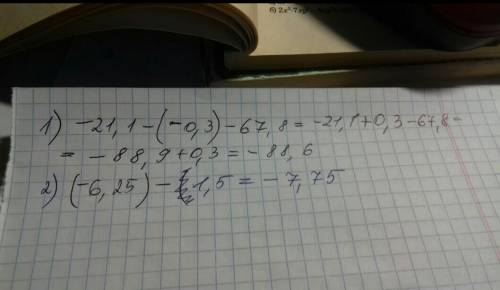 1) -21,1-(-0,3)-67,8=-21,1+0,3-67,8=
=-88,9+0,3=-88,6
2) (-6,25)-1,5=-7,75